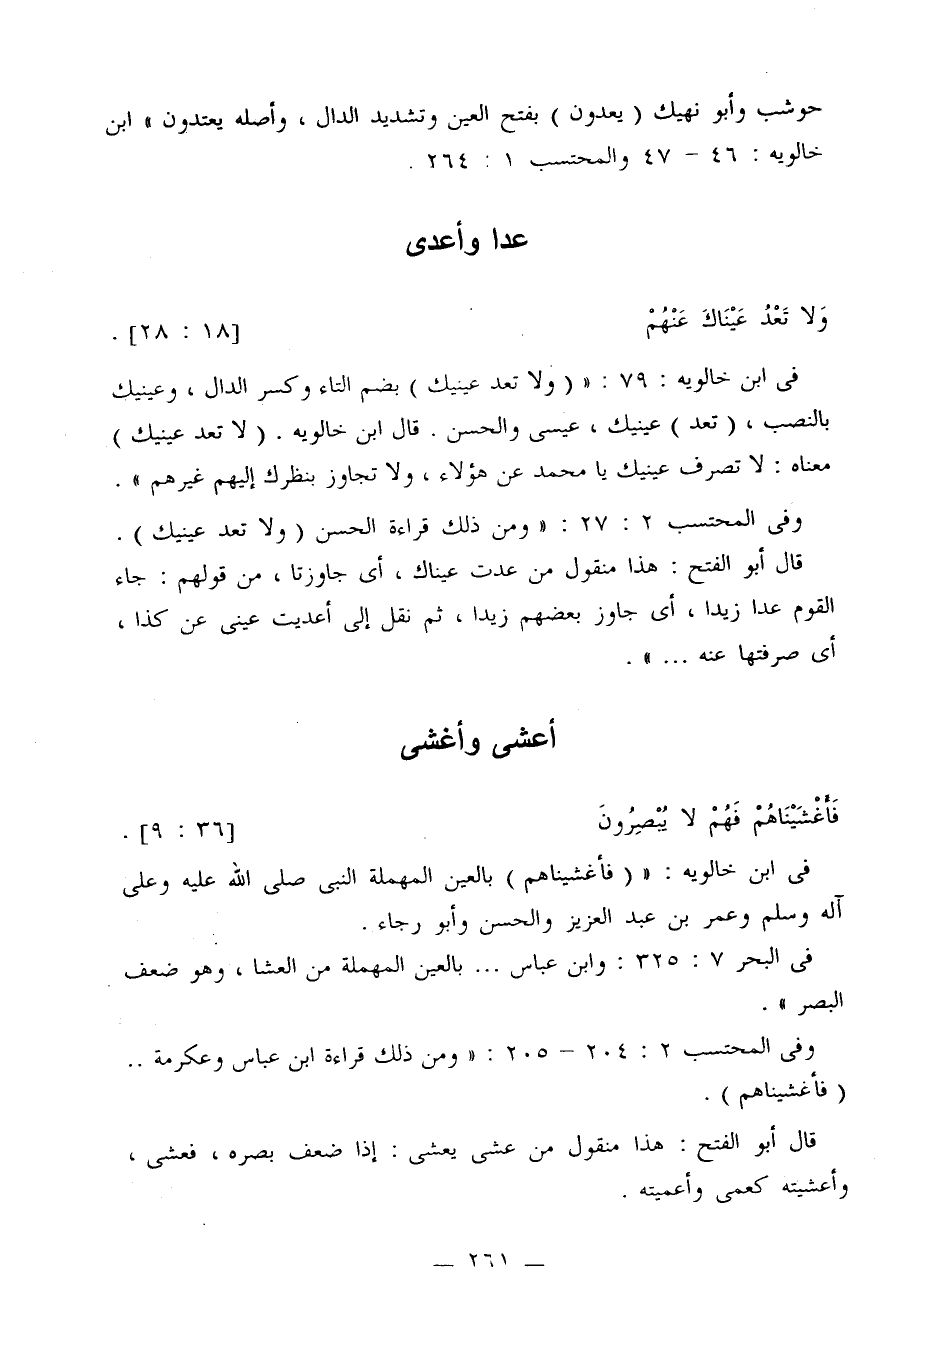 حوشب وأبو نهيك ( يعدون ) بفتح العين وتشديد الدال ، وأصله يعتدون » ابن
خالويه : ٤٦ – ٤٧ والمحتسب ١ : ٢٦٤ .
عدا وأعدى
وَلا تَعْدُ عَيْنَاكَ عَنْهُمْ [١٨ : ٢٨] .
فى ابن خالويه : ٧٩ : « ( ولا تعد عينيك ) بضم التاء وكسر الدال ، وعينيك
بالنصب ، ( تعد ) عينيك ، عيسى والحسن . قال ابن خالويه . ( لا تعد عينيك )
معناه : لا تصرف عينيك يا محمد عن هؤلاء ، ولا تجاوز بنظرك إليهم غيرهم » .
وفى المحتسب ٢ : ٢٧ : « ومن ذلك قراءة الحسن ( ولا تعد عينيك ) .
قال أبو الفتح : هذا منقول من عدت عيناك ، أى جاوزتا ، من قولهم : جاء
القوم عدا زيدا ، أى جاوز بعضهم زيدا ، ثم نقل إلى أعديت عينى عن كذا ،
أى صرفتها عنه ... » .
أعشى وأغشى
فَأَغْشَيْنَاهُمْ فَهُمْ لا يُبْصِرُونَ [٣٦ : ٩] .
فى ابن خالويه : « ( فأغشيناهم ) بالعين المهملة النبى صلى الله عليه وعلى
آله وسلم وعمر بن عبد العزيز والحسن وأبو رجاء .
فى البحر ٧ : ٣٢٥ : وابن عباس ... بالعين المهملة من العشا ، وهو ضعف
البصر » .
وفى المحتسب ٢ : ٢٠٤ – ٢٠٥ : « ومن ذلك قراءة ابن عباس وعكرمة ..
( فأغشيناهم ) .
قال أبو الفتح : هذا منقول من عشى يعشى : إذا ضعف بصره ، فعشى ،
وأعشيته كعمى وأعميته .
— ٢٦١ —